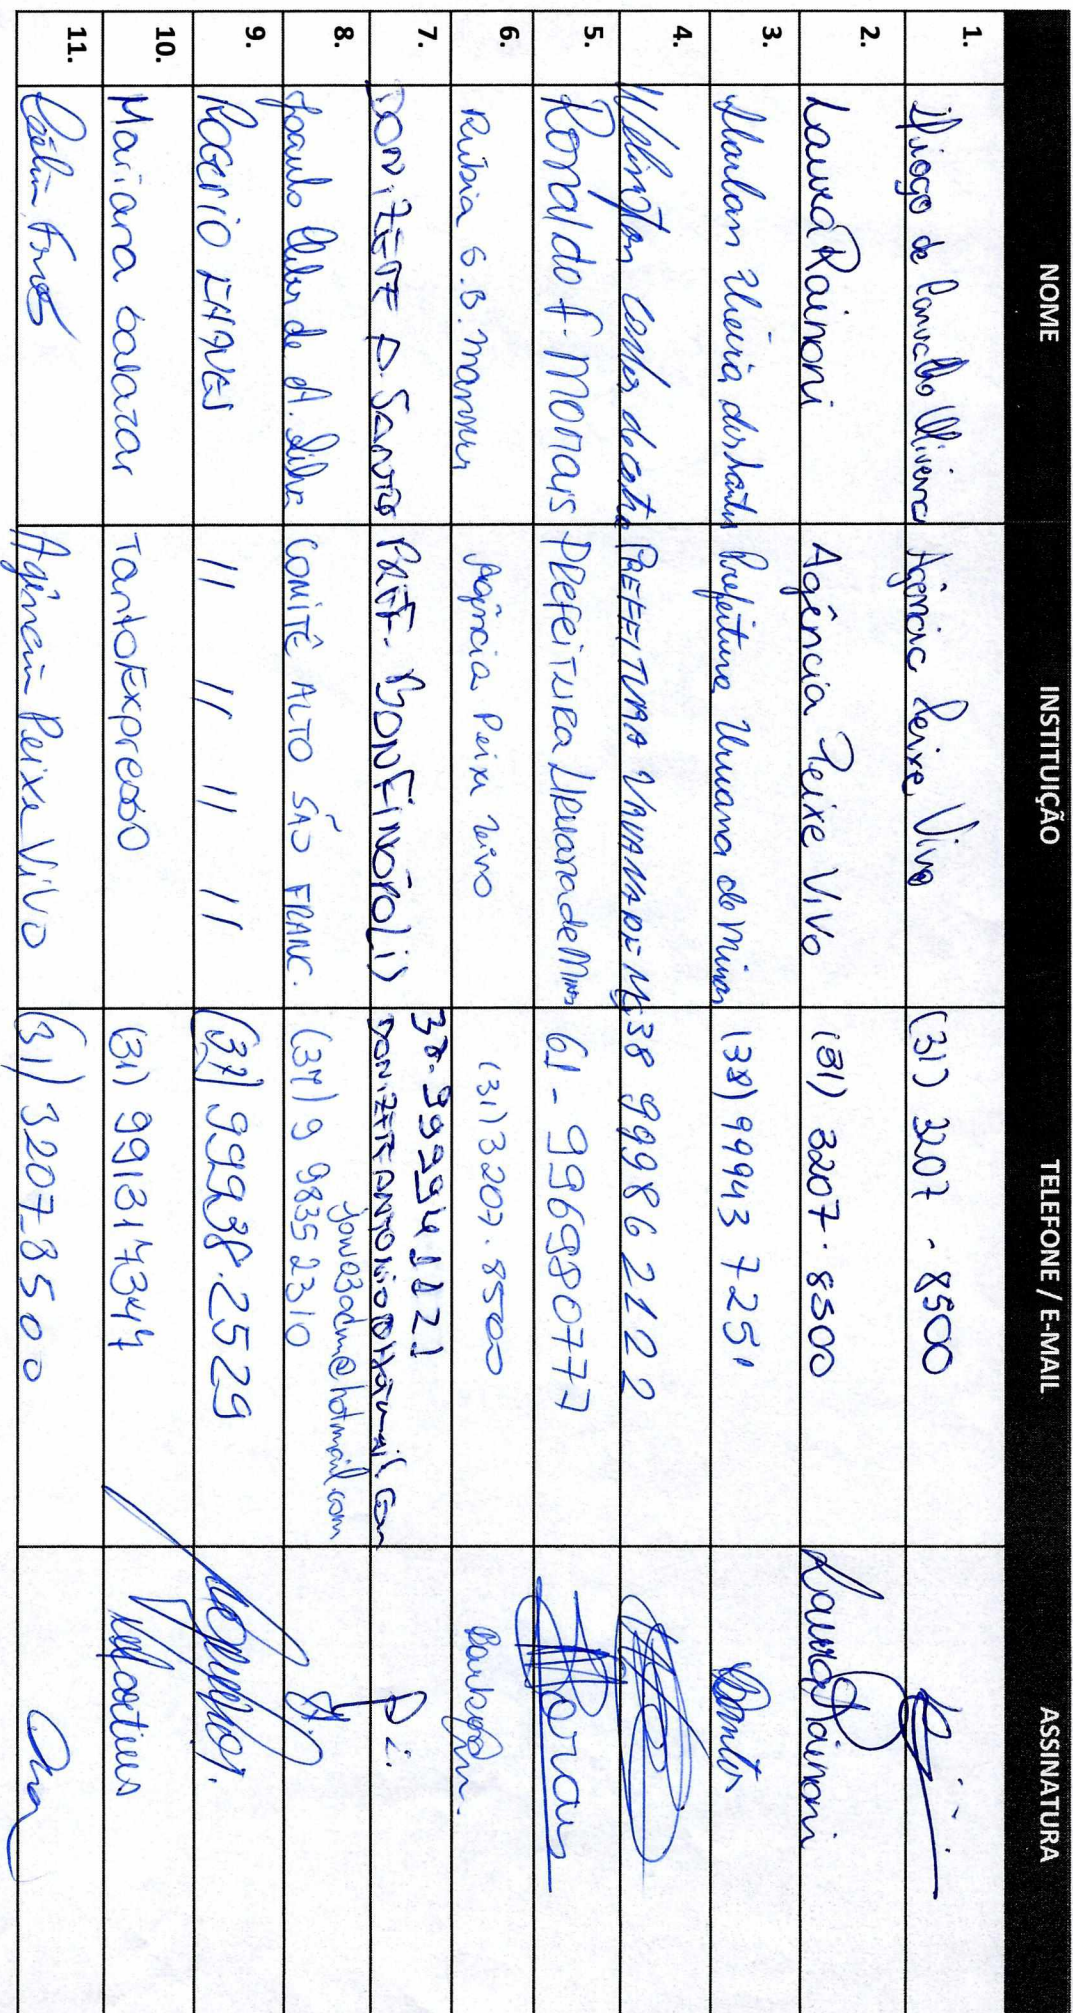 NOME INSTITUIÇÃO TELEFONE / E-MAIL ASSINATURA
1. Diogo de Carvalho Oliveira Agência Peixe Vivo (31) 3207 - 8500
2. Laura Rainoni Agência Peixe Vivo (31) 3207.8500 Laura Rainoni
3. Marlon Vieira dos Santos Prefeitura Uruana de Minas (38) 99943 7251 Santos
4. Welington Costa PREFEITURA URUANA DE MG 38 999862122
5. Ronaldo f. Morais PREFEITURA Uruana de Minas 61 - 996980777 Morais
6. Rúbia S.B. Mansur Agência Peixe Vivo (31) 3207.8500
7. DONIZETE A. SANTOS PREF. BONFINÓPOLIS 38.999941121
DONIZETEANTONIO@HOTMAIL.COM
8. de A. Silva COMITÊ ALTO SÃO FRANC. (37) 9 9835 2310
jowa3adm@hotmail.com
9. ROGÉRIO CHAVES 11 11 11 11 (37) 99938.2529
10. Mariana Salazar TantoExpresso (31) 991317344 Martins
11. Célia Fróes Agência Peixe Vivo (31) 3207-8500